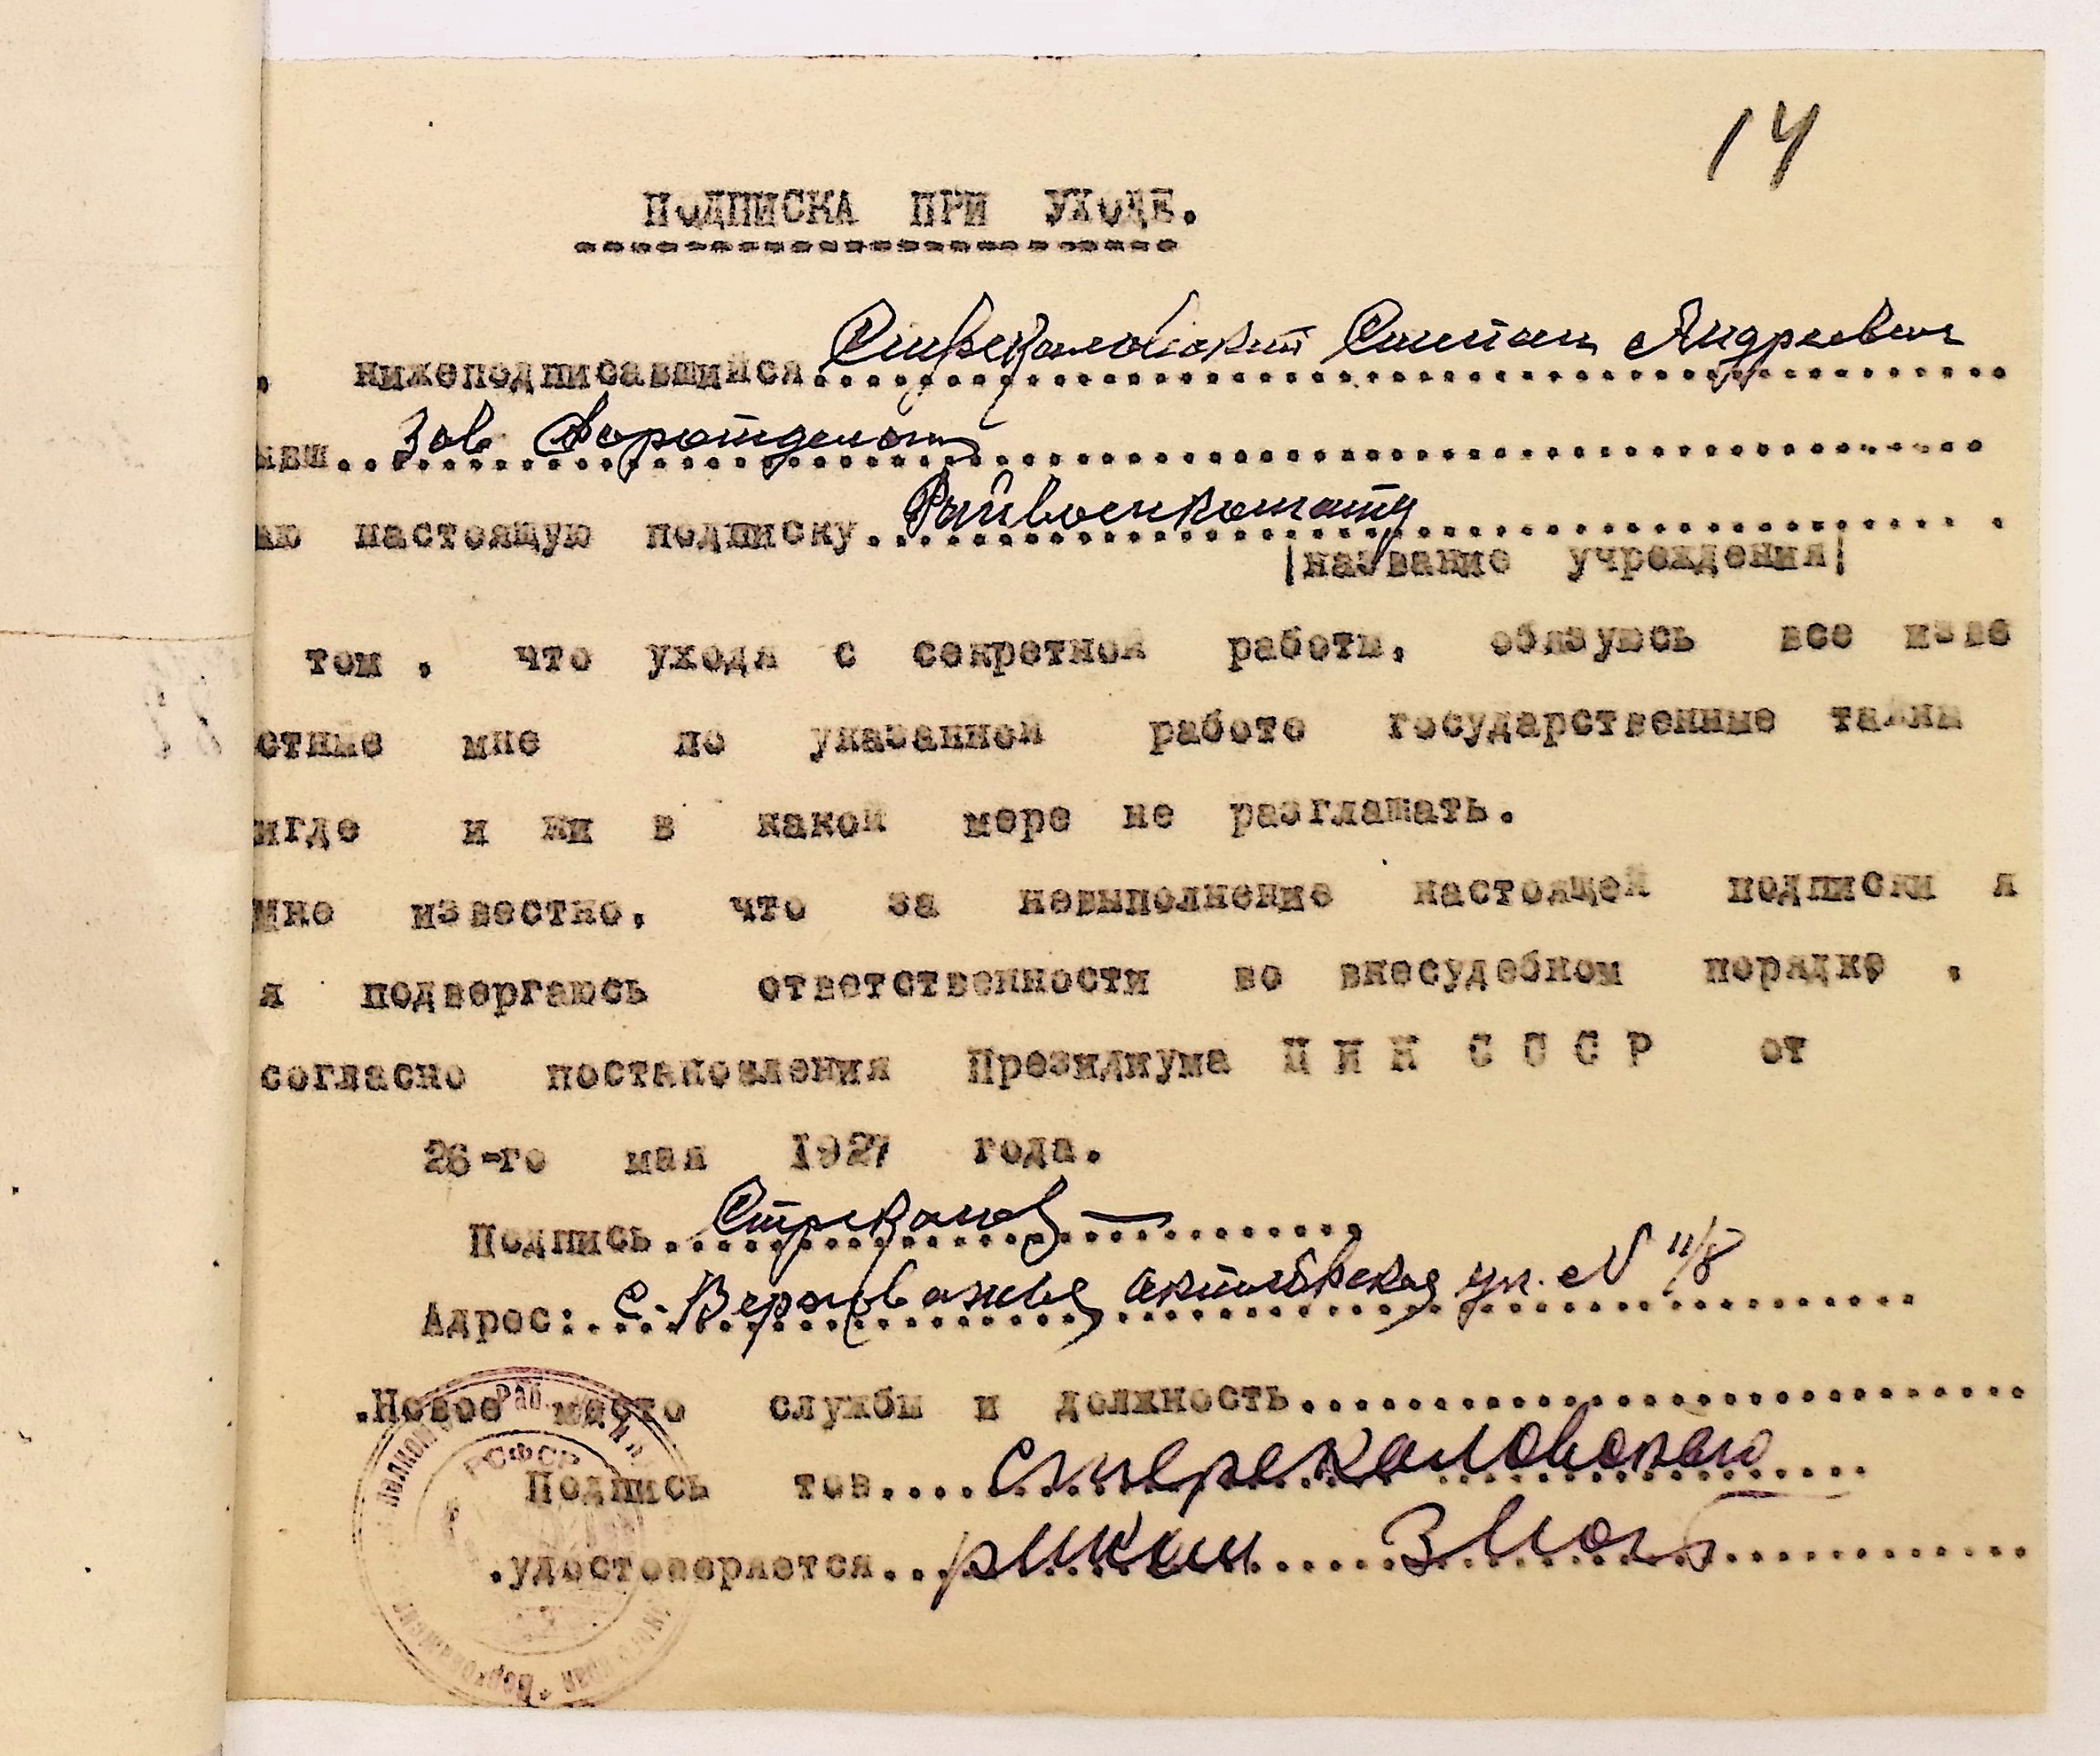 14
ПОДПИСКА ПРИ УХОДЕ.
. нижеподписавшийся Стрекаловский Степан Андреевич
ывш. Зав Доротделом
аю настоящую подписку Райвоенкомату
|название учреждения|
том , что уходя с секретной работы, обязуюсь все изве
стные мне по указанной работе государственные тайны
игде и ни в какой мере не разглашать.
мне известно, что за невыполнение настоящей подписки я
я подвергаюсь ответственности во внесудебном порядке ,
согласно постановления Президиума Ц И К С С С Р от
26-го мая 1927 года.
Подпись Стрекалов
Адрес: с. Верховажье октябрьская ул. № 11/8
.Новое место службы и должность
Подпись тов. Стрекаловского
.удостоверяется
РСФСР